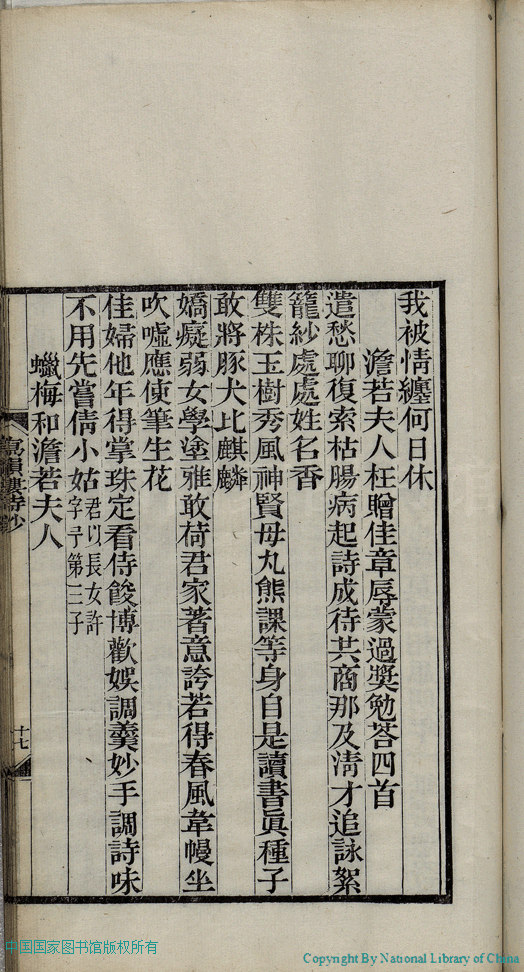 我被情纏何日休
澹若夫人枉贈佳章辱蒙過獎勉荅四首
遣愁聊復索枯腸病起詩成待共商那及淸才追詠絮
籠紗處處姓名香
雙株玉樹秀風神賢母丸熊課等身自是讀書眞種子
敢將豚犬比麒麟
嬌癡弱女學塗雅敢荷君家著意誇若得春風韋幔坐
吹噓應使筆生花
佳婦他年得掌珠定看侍餕博歡娛調羹妙手調詩味
不用先嘗倩小姑君以長女許字予第三子
蠟梅和澹若夫人
寫韻樓詩鈔
十七
中国国家图书馆版权所有
Copyright By National Library of China